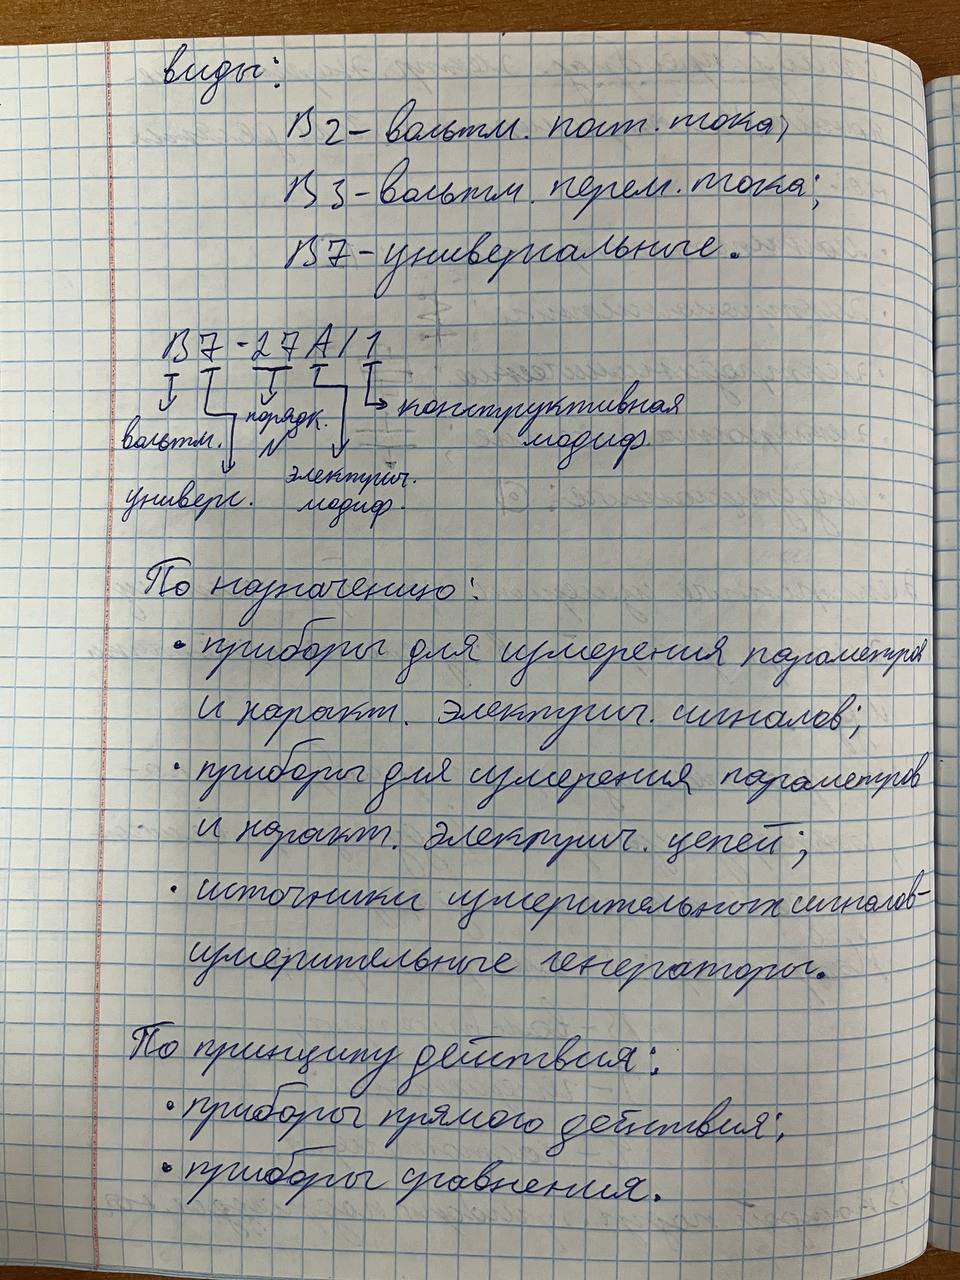 виды:
В2 - вольтм. пост. тока;
В3 - вольтм. перем. тока;
В7 - универсальные.
В7-27А/1
вольтм.
порядк.
N
конструктивная
модиф.
универс.
электрич.
модиф.
По назначению:
• приборы для измерения параметров
и характ. электрич. сигналов;
• приборы для измерения параметров
и характ. электрич. цепей;
• источники измерительных сигналов-
измерительные генераторы.
По принципу действия:
• приборы прямого действия;
• приборы сравнения.